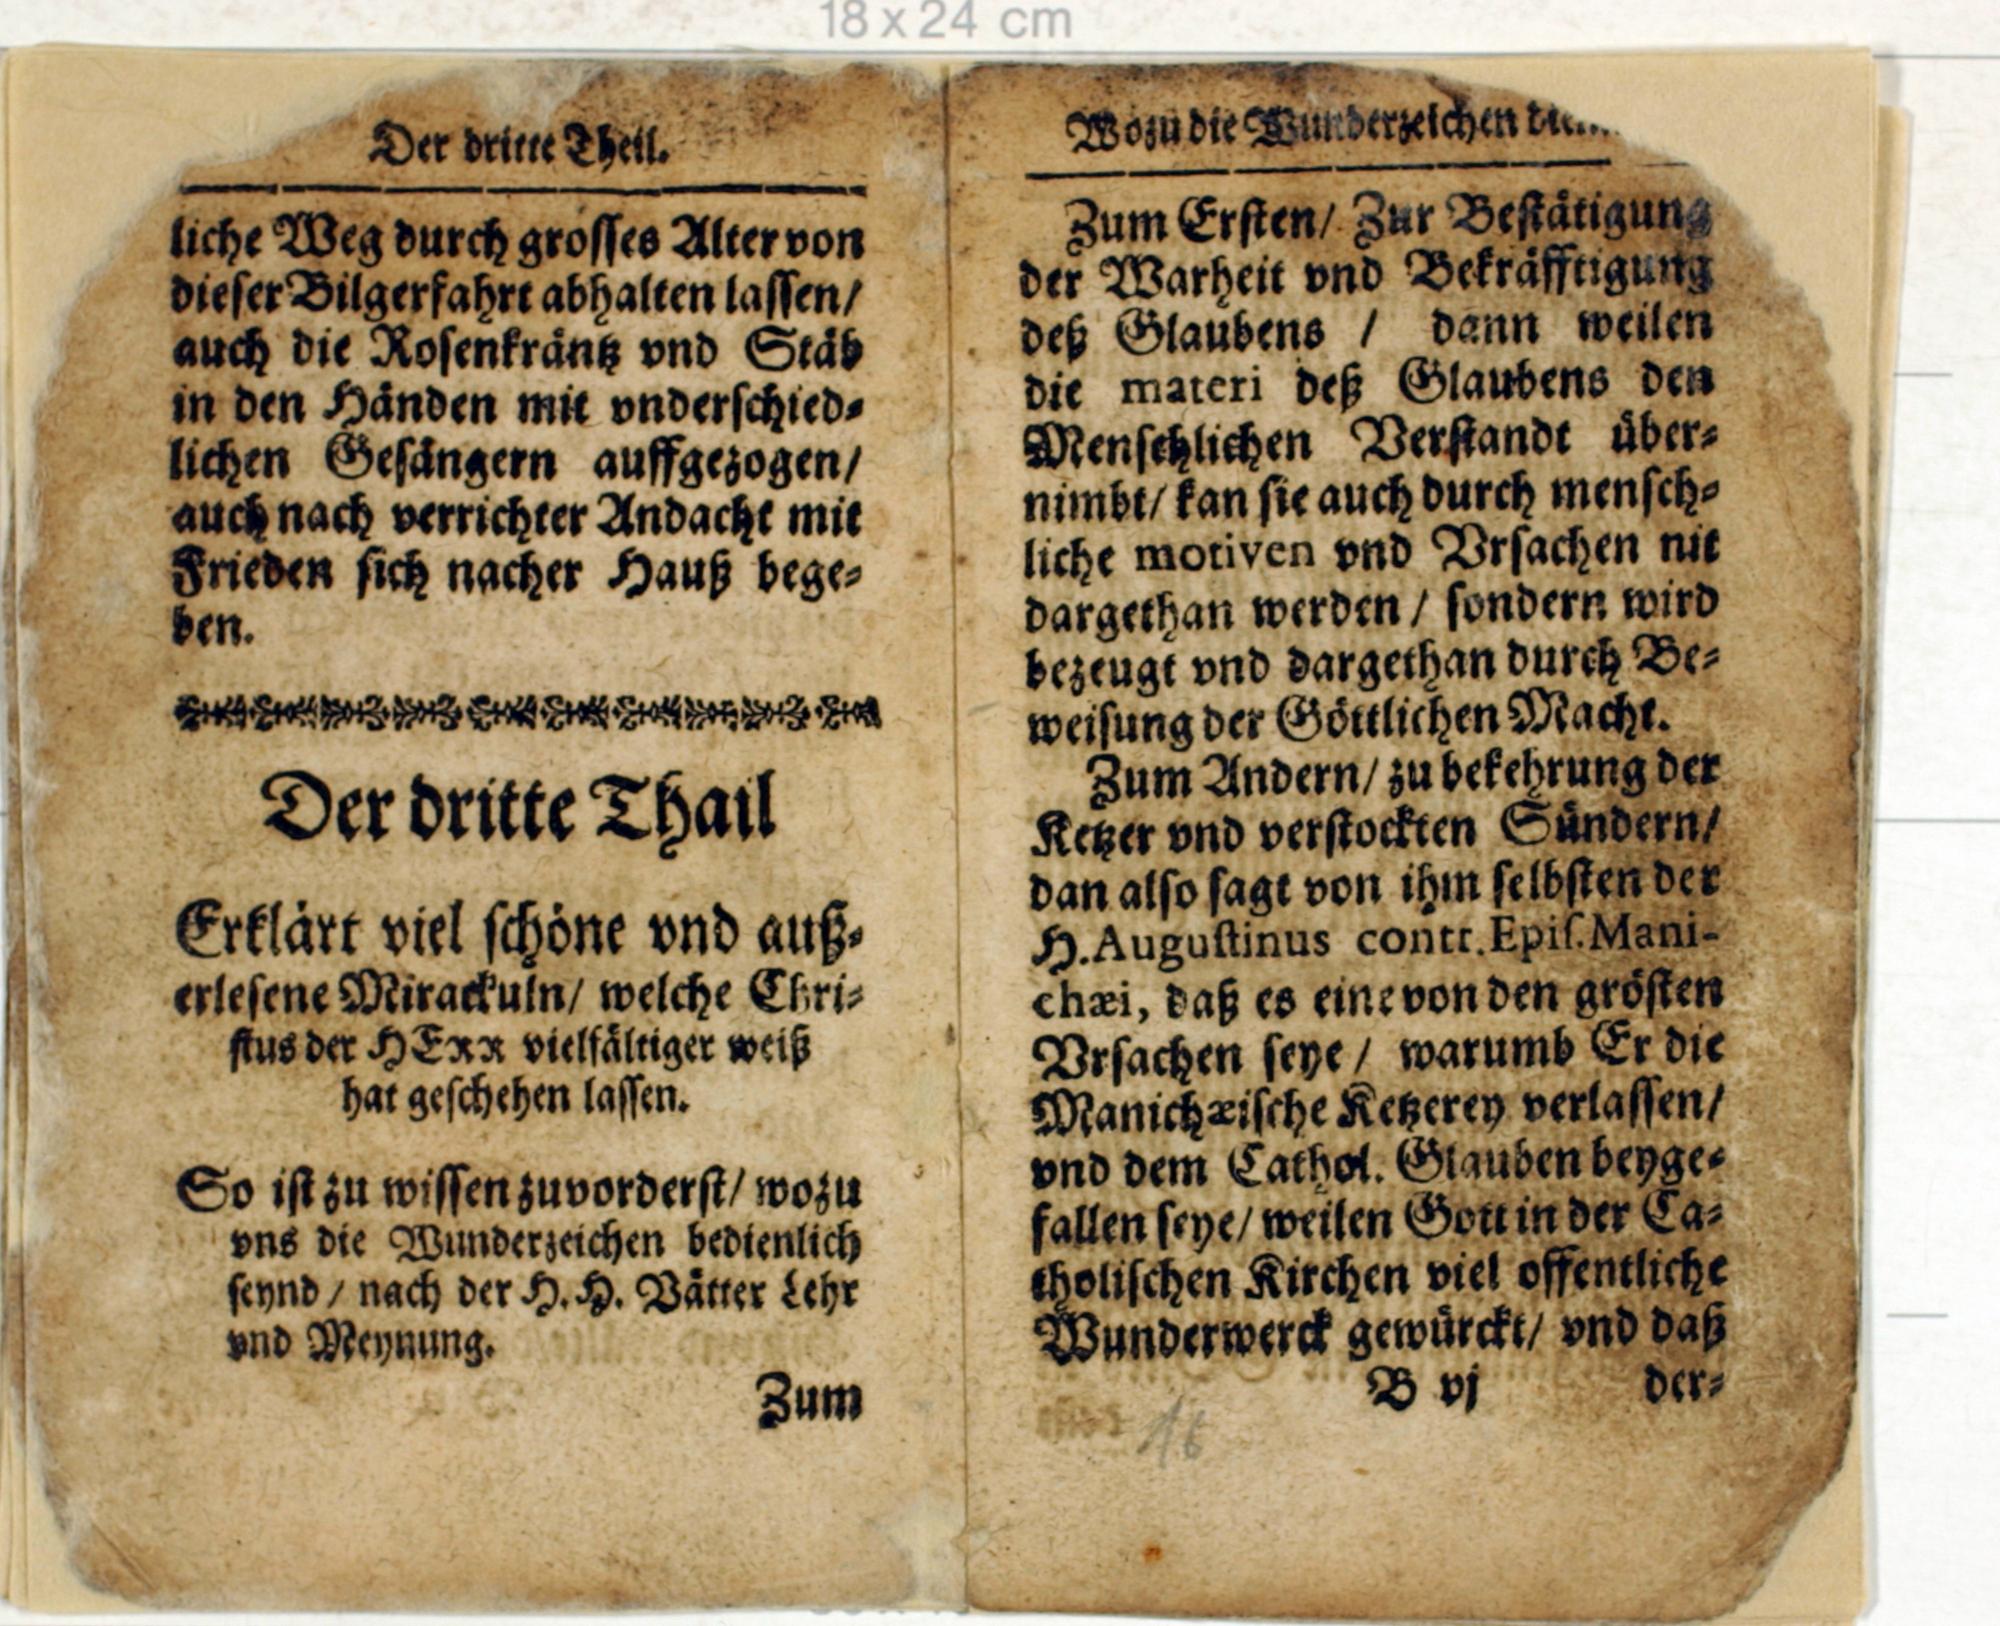 18 x 24 cm
Der dritte Theil.
liche Weg durch grosses Alter von
dieser Bilgerfahrt abhalten lassen/
auch die Rosenkräntz vnd Stäb
in den Händen mit vnderschied-
lichen Gesängern auffgezogen/
auch nach verrichter Andacht mit
Frieden sich nacher Hauß bege-
ben.
Der dritte Thail
Erklärt viel schöne vnd auß-
erlesene Mirackuln/ welche Chri-
stus der HErr vielfältiger weiß
hat geschehen lassen.
So ist zu wissen zuvorderst/ wozu
vns die Wunderzeichen bedienlich
seynd / nach der H. H. Vätter Lehr
vnd Meynung.
Zum
Wozu die Wunderzeichen
Zum Ersten/ Zur Bestätigung
der Warheit vnd Bekräfftigung
deß Glaubens / dann weilen
die materi deß Glaubens den
Menschlichen Verstandt über-
nimbt/ kan sie auch durch mensch-
liche motiven vnd Vrsachen nit
dargethan werden / sondern wird
bezeugt vnd dargethan durch Be-
weisung der Göttlichen Macht.
Zum Andern/ zu bekehrung der
Ketzer vnd verstockten Sündern/
dan also sagt von ihm selbsten der
H. Augustinus contr. Epis. Mani-
chæi, daß es eine von den grösten
Vrsachen seye / warumb Er die
Manichæische Ketzerey verlassen/
vnd dem Cathol. Glauben beyge-
fallen seye/ weilen Gott in der Ca-
tholischen Kirchen viel offentliche
Wunderwerck gewürckt/ vnd daß
B vj der-
16